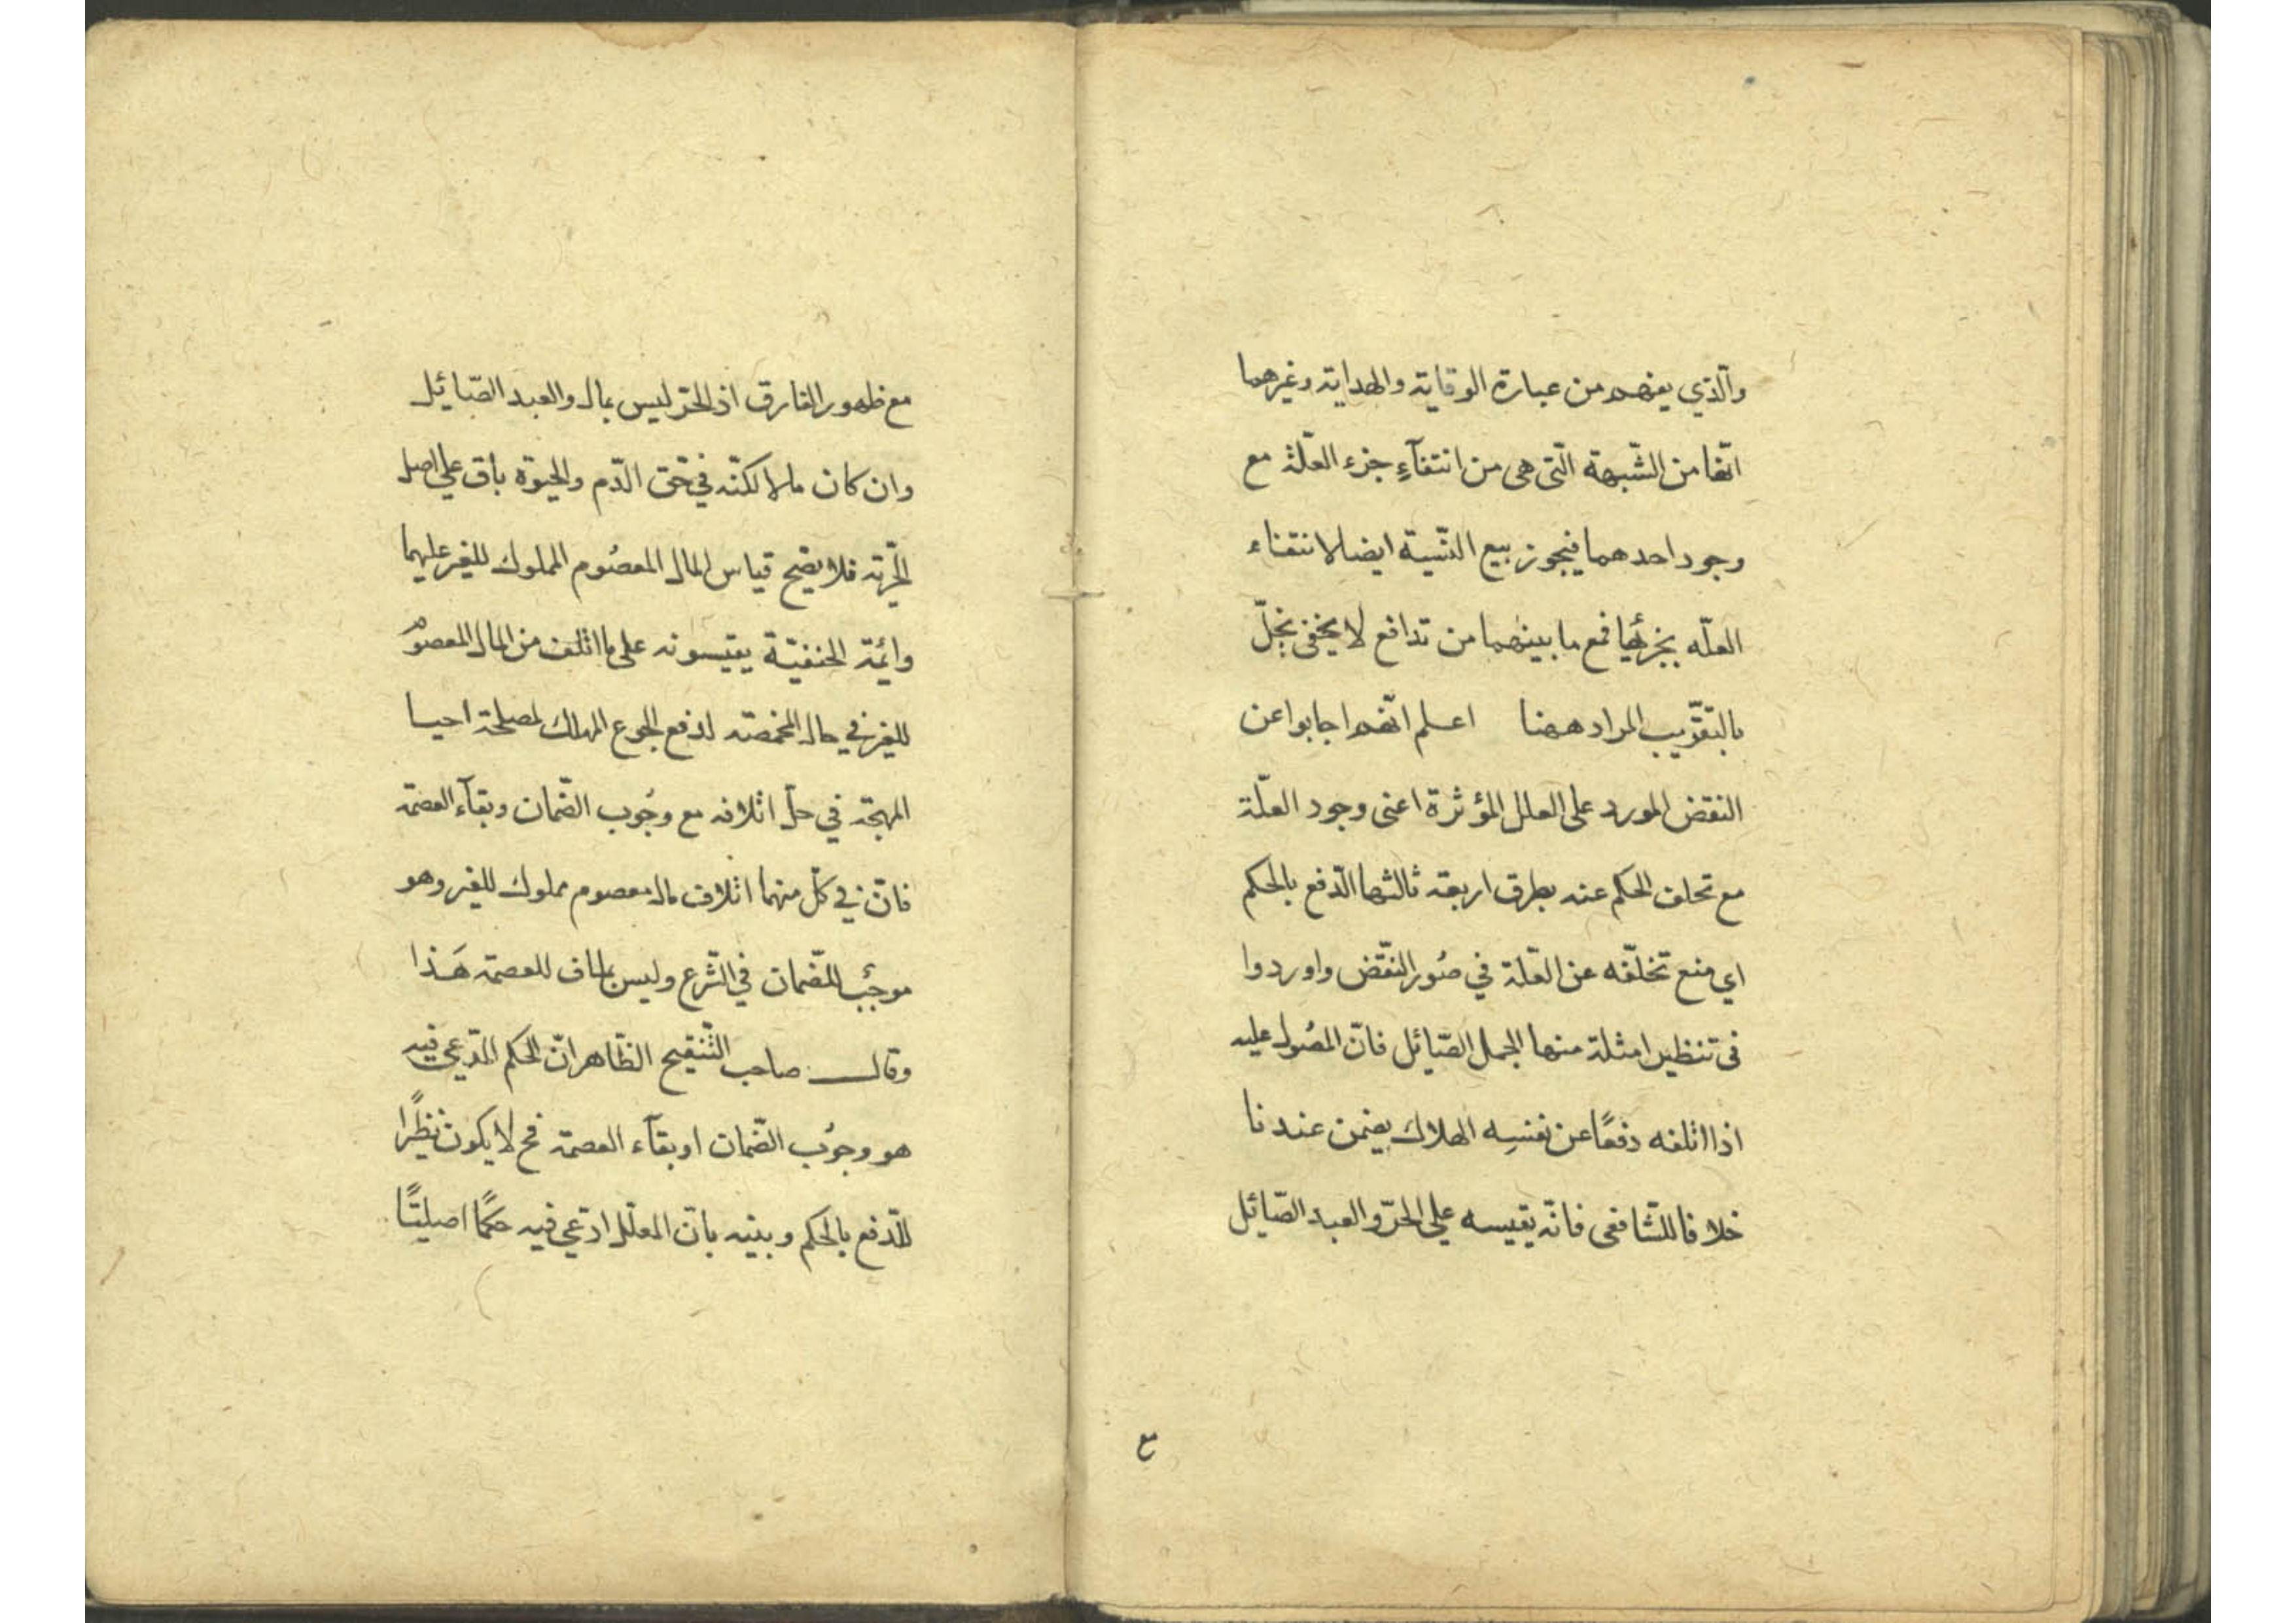 والّذي يفهم من عبارة الوقاية والهداية وغيرهما
انّها من الشّبهة الّتى هى من انتفآءِ جزء العلّة مع
وجود احدهما فيجوز بيع النّسية ايضا لانتفاء
العلّه بجزئها فمع ما بينهما من تدافع لا يخفى بخلّ
بالتّقريب المراد ههنا اعلم انّهم اجابوا عن
النقض المورد على العلل المؤثرة اعنى وجود العلّة
مع تخلف الحكم عنه بطرق اربعة ثالثها الدّفع بالحكم
اي منع تخلّفه عن العلّة في صُور النّقض واوردوا
فى تنظير امثلة منها الجمل الصّائل فانّ المصُول عليه
اذا اتلفه دفعًا عن نفسِه الهلاك يضمن عندنا
خلافا للشّافعى فانّه يقيسه على الحرّ والعبد الصّائل
مع
مع ظهور الفارق اذ الحرّ ليس بمال والعبد الصّائل
وان كان مالا لكنّه في حّق الدّم والحيوة باق على اصل
الحّرية فلا يصّح قياس المال المعصُوم المملوك للغير عليهما
وائمّة الحنفيّة يقيسونه على ما اتلف من المال المعصوم
للغير في حال المخمصّة لدفع الجوع المهلك لمصلحة احيا
المهجّة في حلّ اتلافه مع وجُوب الضّمان وبقآء العصمّة
فانّ في كلّ منهما اتلاف مال معصوم مملوك للغير وهو
موجبٌ للضّمان في الشّرع وليس بمناف للعصمة هَذا
وقال صاحب التّنقيح الظّاهر انّ الحكم المدّعي فيه
هو وجوُب الضّمان او بقآء العصمّة فح لا يكون نظيرًا
للدّفع بالحكم وبيّنه بانّ المعلّل ادّعي فيه حكمًا اصليًّا